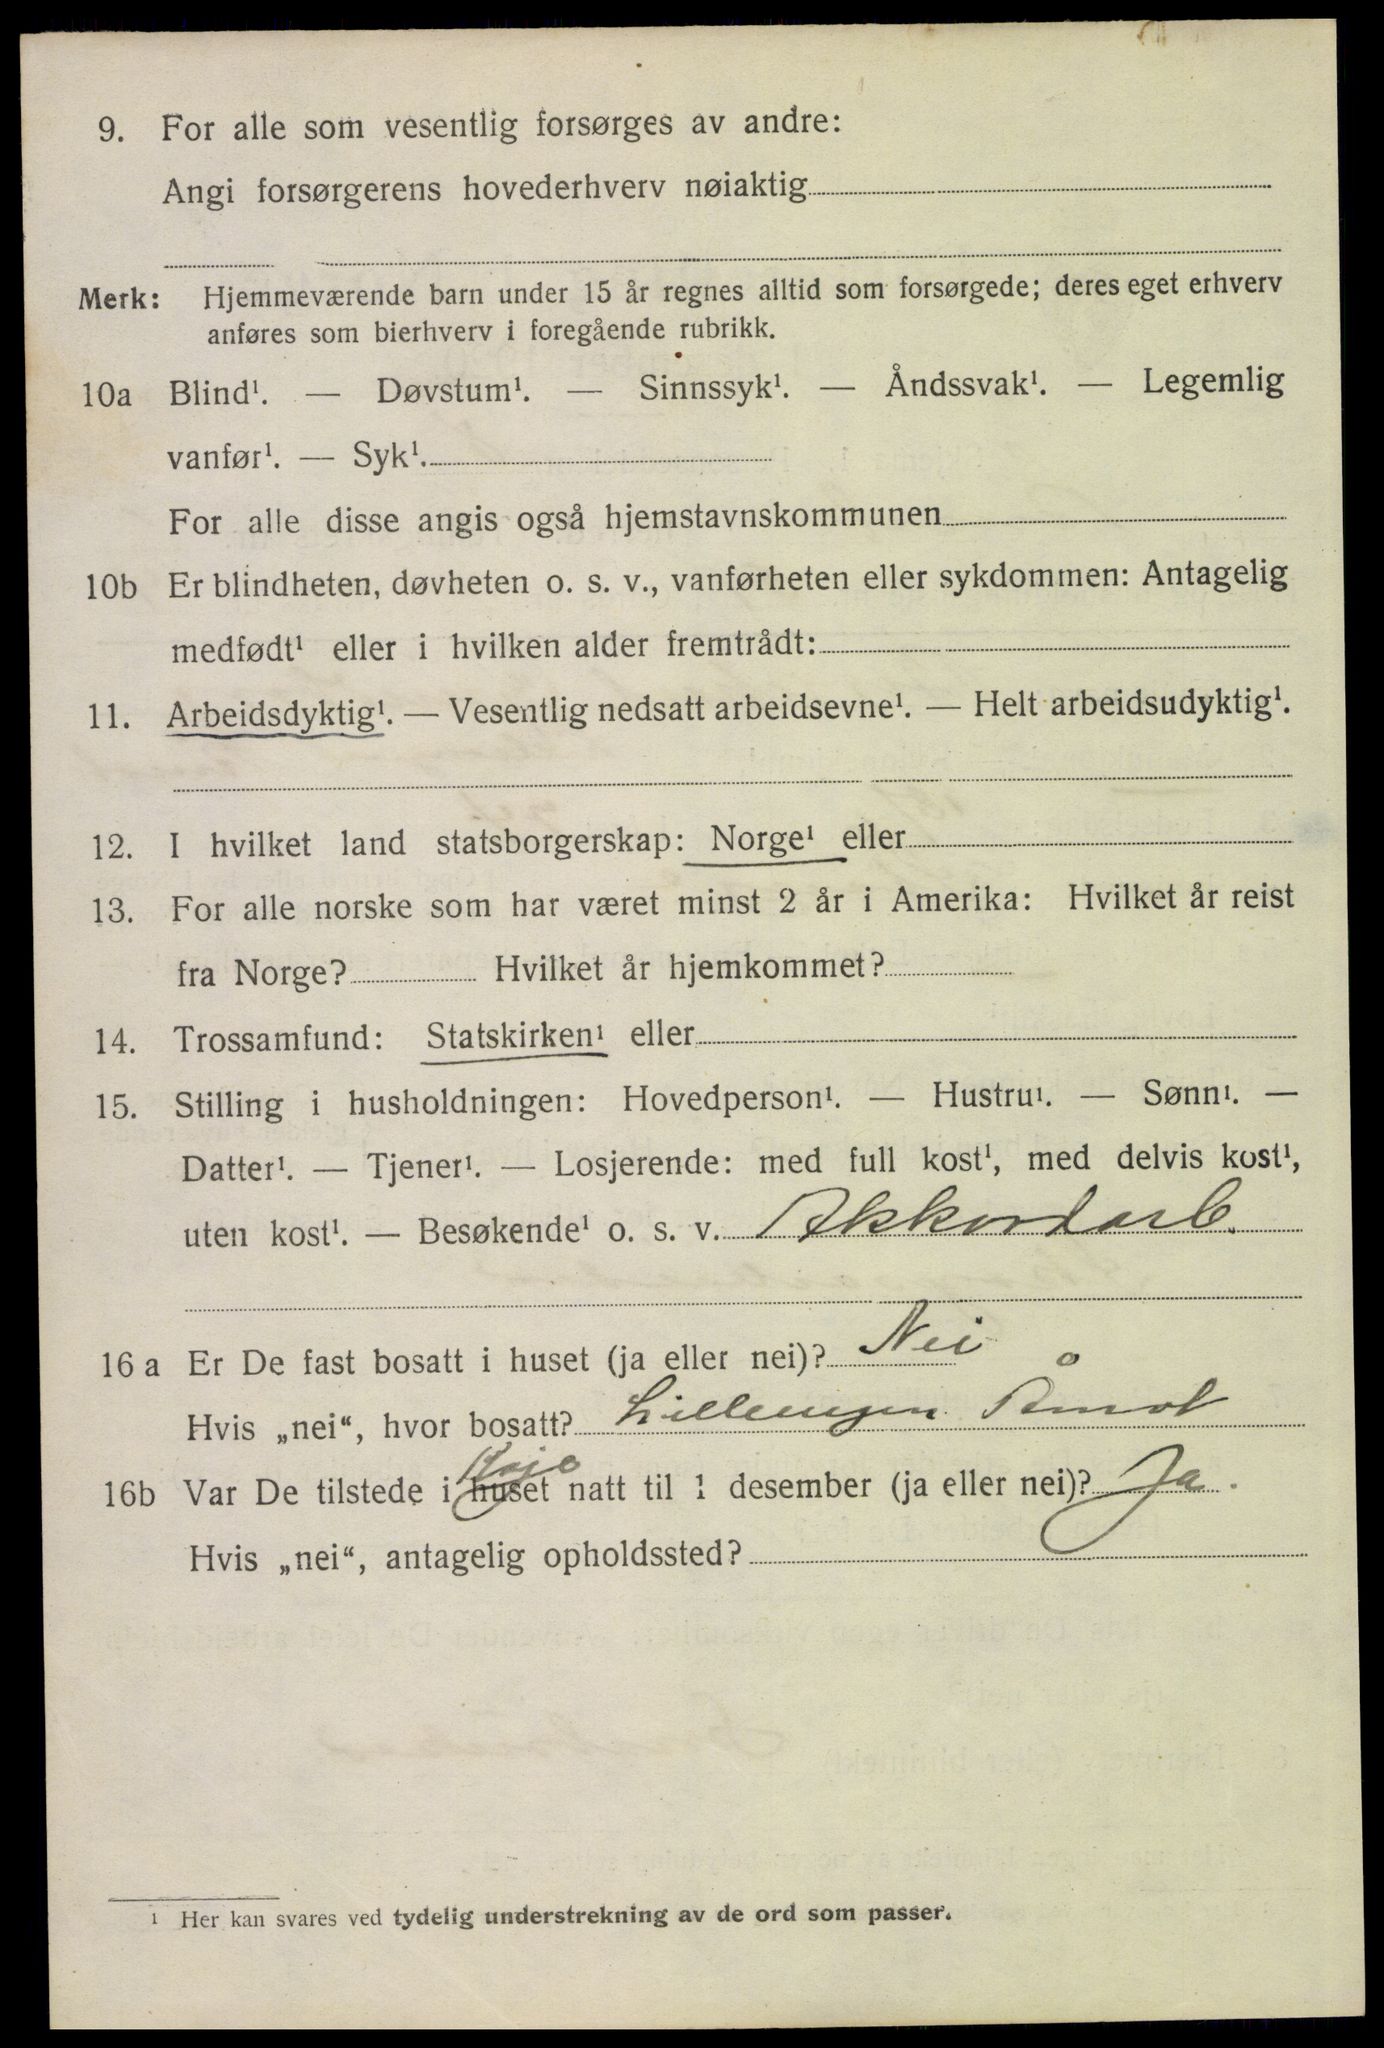 9. For alle som vesentlig forsørges av andre:
Angi forsørgerens hovederhverv nøiaktig
Merk: Hjemmeværende barn under 15 år regnes alltid som forsørgede; deres eget erhverv
anføres som bierhverv i foregående rubrikk.
10a Blind¹. — Døvstum¹. — Sinnssyk¹. — Åndssvak¹. — Legemlig
vanfør¹. — Syk¹.
For alle disse angis også hjemstavnskommunen
10b Er blindheten, døvheten o. s. v., vanførheten eller sykdommen: Antagelig
medfødt¹ eller i hvilken alder fremtrådt:
11. Arbeidsdyktig¹. — Vesentlig nedsatt arbeidsevne¹. — Helt arbeidsudyktig¹.
12. I hvilket land statsborgerskap: Norge¹ eller
13. For alle norske som har været minst 2 år i Amerika: Hvilket år reist
fra Norge? Hvilket år hjemkommet?
14. Trossamfund: Statskirken¹ eller
15. Stilling i husholdningen: Hovedperson¹. — Hustru¹. — Sønn¹. —
Datter¹. — Tjener¹. — Losjerende: med full kost¹, med delvis kost¹,
uten kost¹. — Besøkende¹ o. s. v. Akkordarb.
16a Er De fast bosatt i huset (ja eller nei)? Nei
Hvis „nei“, hvor bosatt? Lillemyren Åmot
16b Var De tilstede i huset natt til 1 desember (ja eller nei)? Ja.
Hvis „nei“, antagelig opholdssted?
¹ Her kan svares ved tydelig understrekning av de ord som passer.